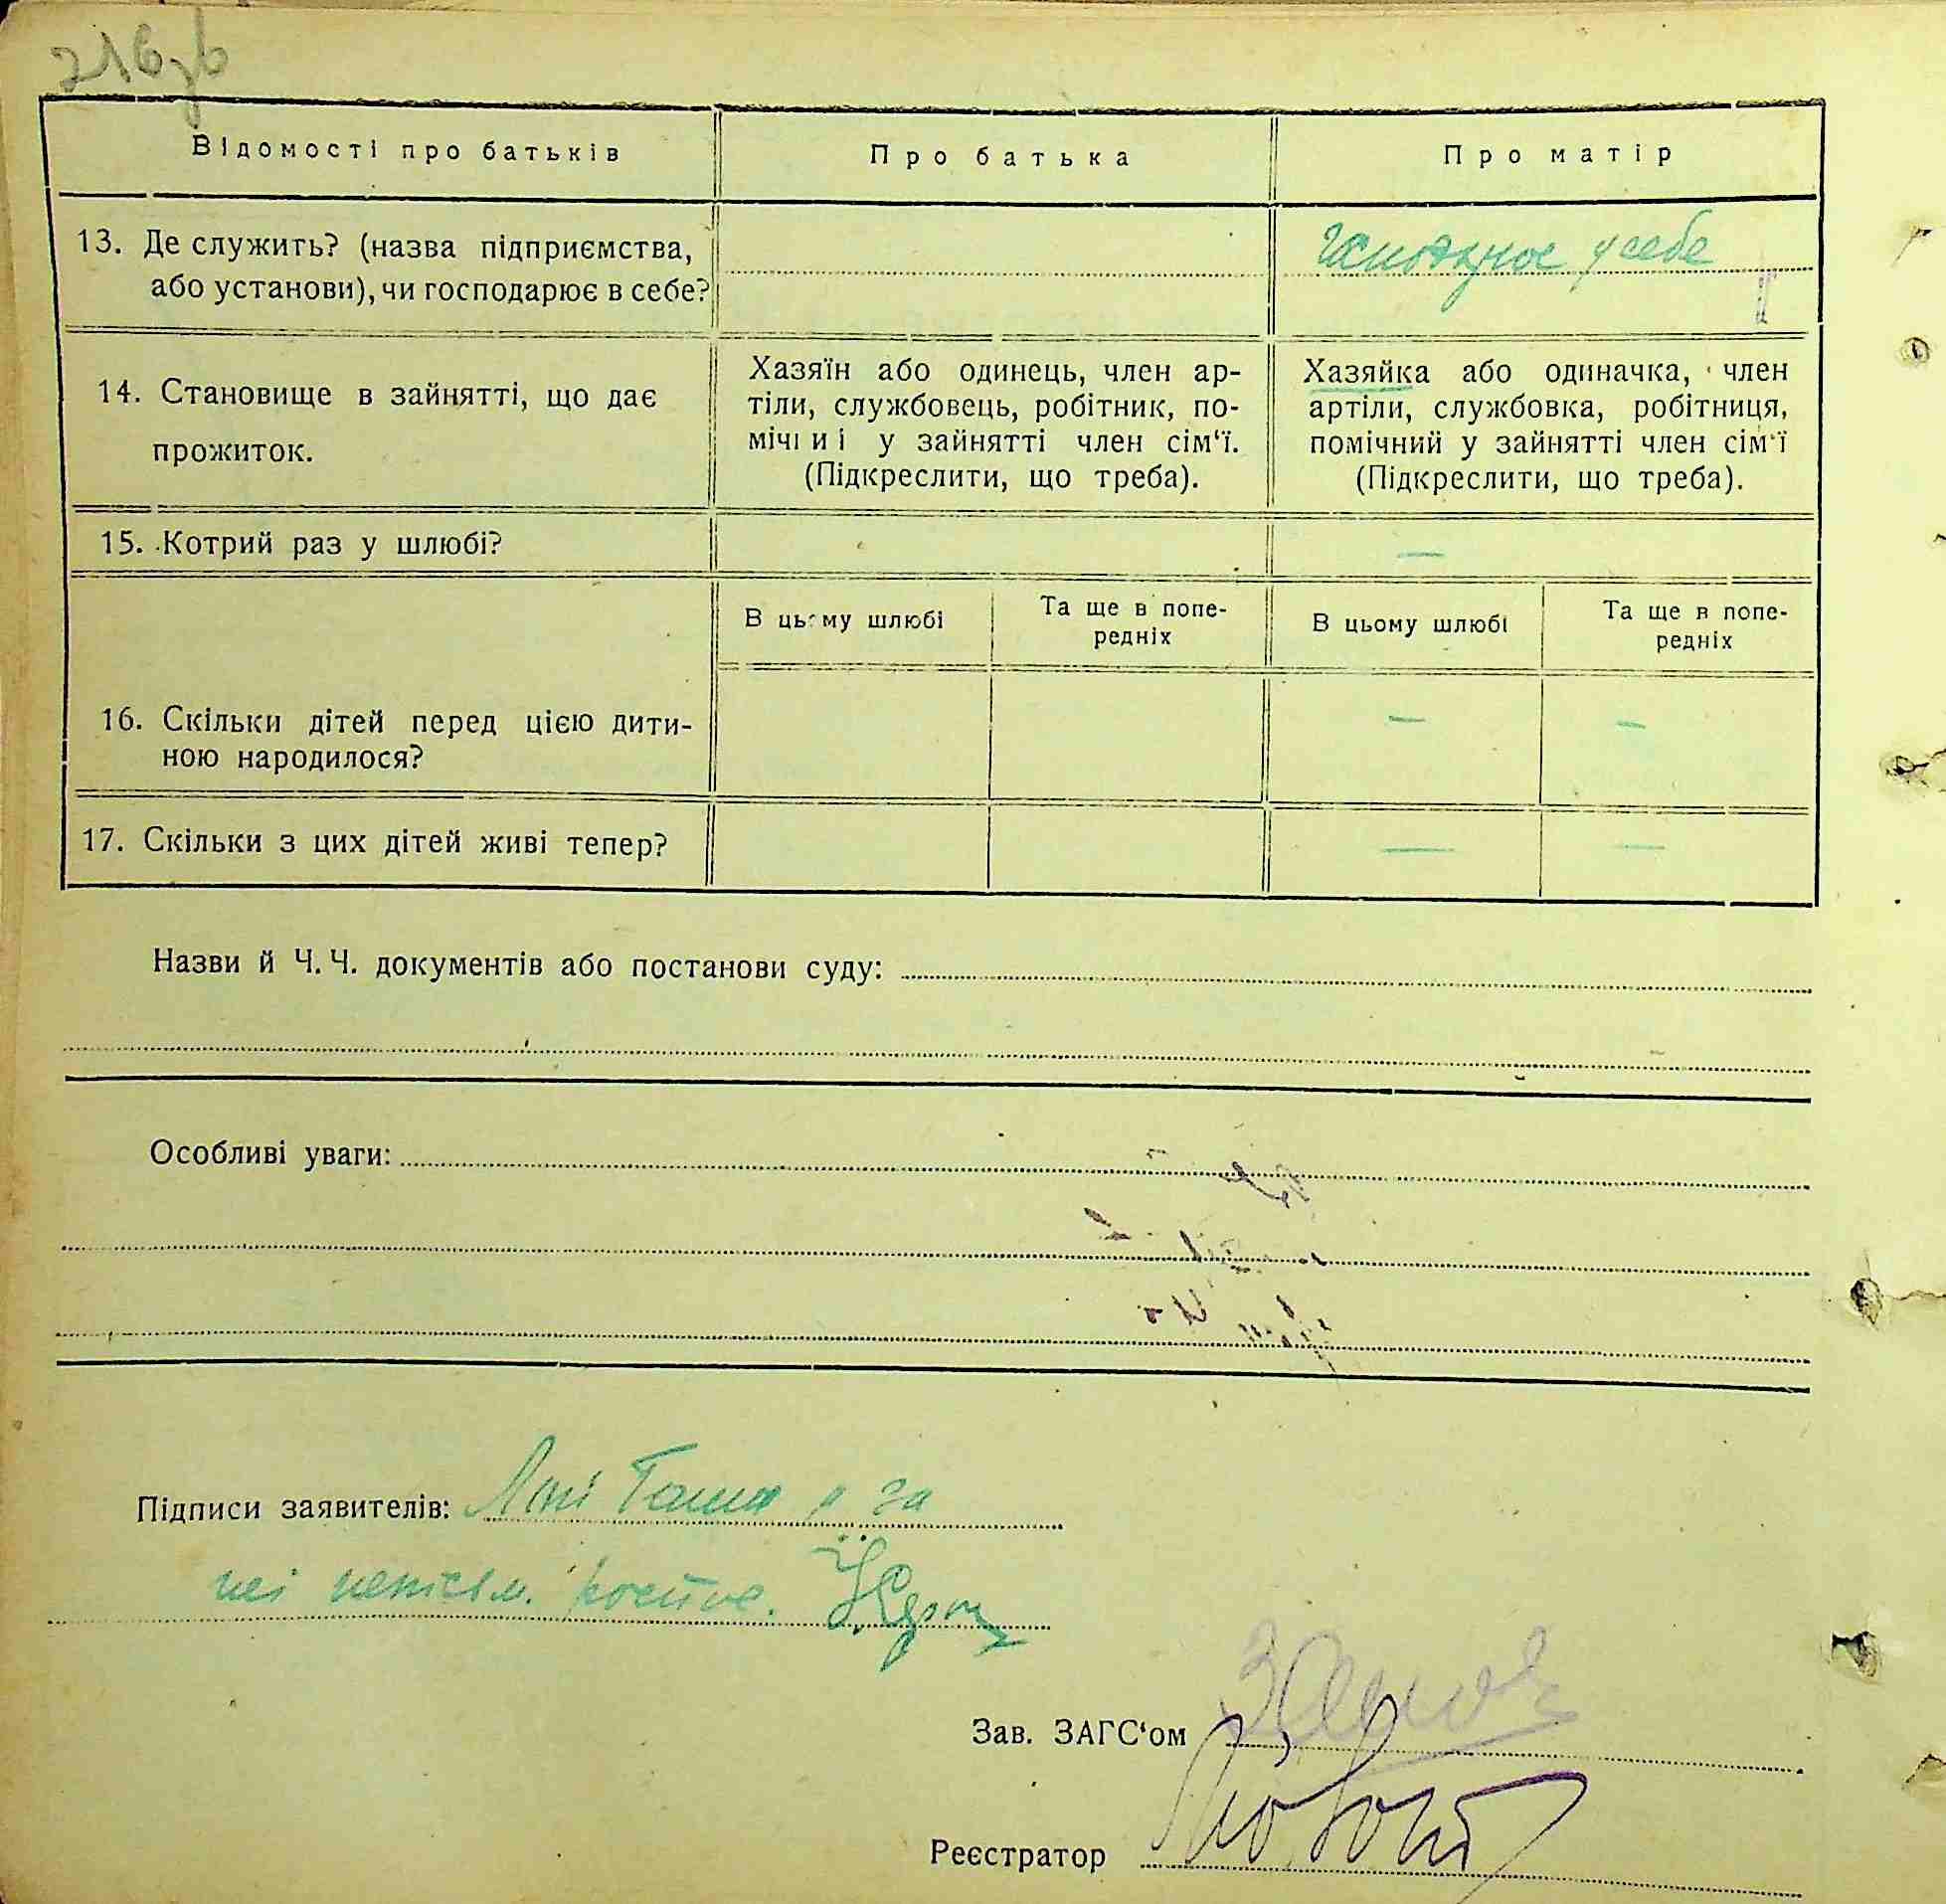 216зв
Відомості про батьків
Про батька
Про матір
13. Де служить? (назва підприємства,
або установи), чи господарює в себе?
господарює у себе
14. Становище в зайнятті, що дає
прожиток.
Хазяїн або одинець, член ар-
тіли, службовець, робітник, по-
мічниі у зайнятті член сім‘ї.
(Підкреслити, що треба).
Хазяйка або одиначка, член
артіли, службовка, робітниця,
помічний у зайнятті член сім‘ї
(Підкреслити, що треба).
15. Котрий раз у шлюбі?
—
В цьому шлюбі
Та ще в попе-
редніх
В цьому шлюбі
Та ще в попе-
редніх
16. Скільки дітей перед цією дити-
ною народилося?
— —
17. Скільки з цих дітей живі тепер?
— —
Назви й Ч. Ч. документів або постанови суду:
Особливі уваги:
Підписи заявителів:
за
Зав. ЗАГС‘ом
Реєстратор